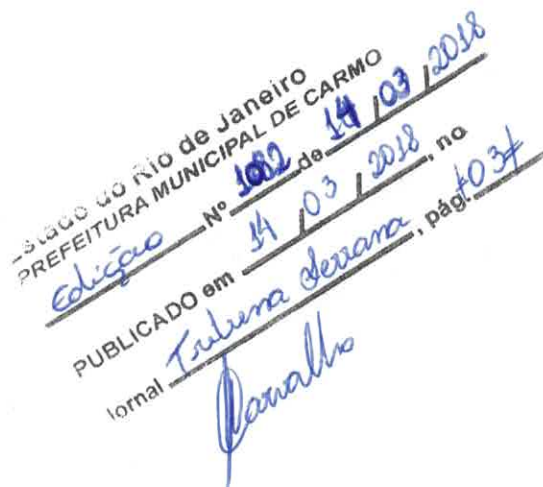 Estado do Rio de Janeiro
PREFEITURA MUNICIPAL DE CARMO
Edição Nº 1082 de 14 / 03 / 2018
PUBLICADO em 14 / 03 / 2018, no
Jornal Tribuna Serrana, pág. #03#
Carvalho